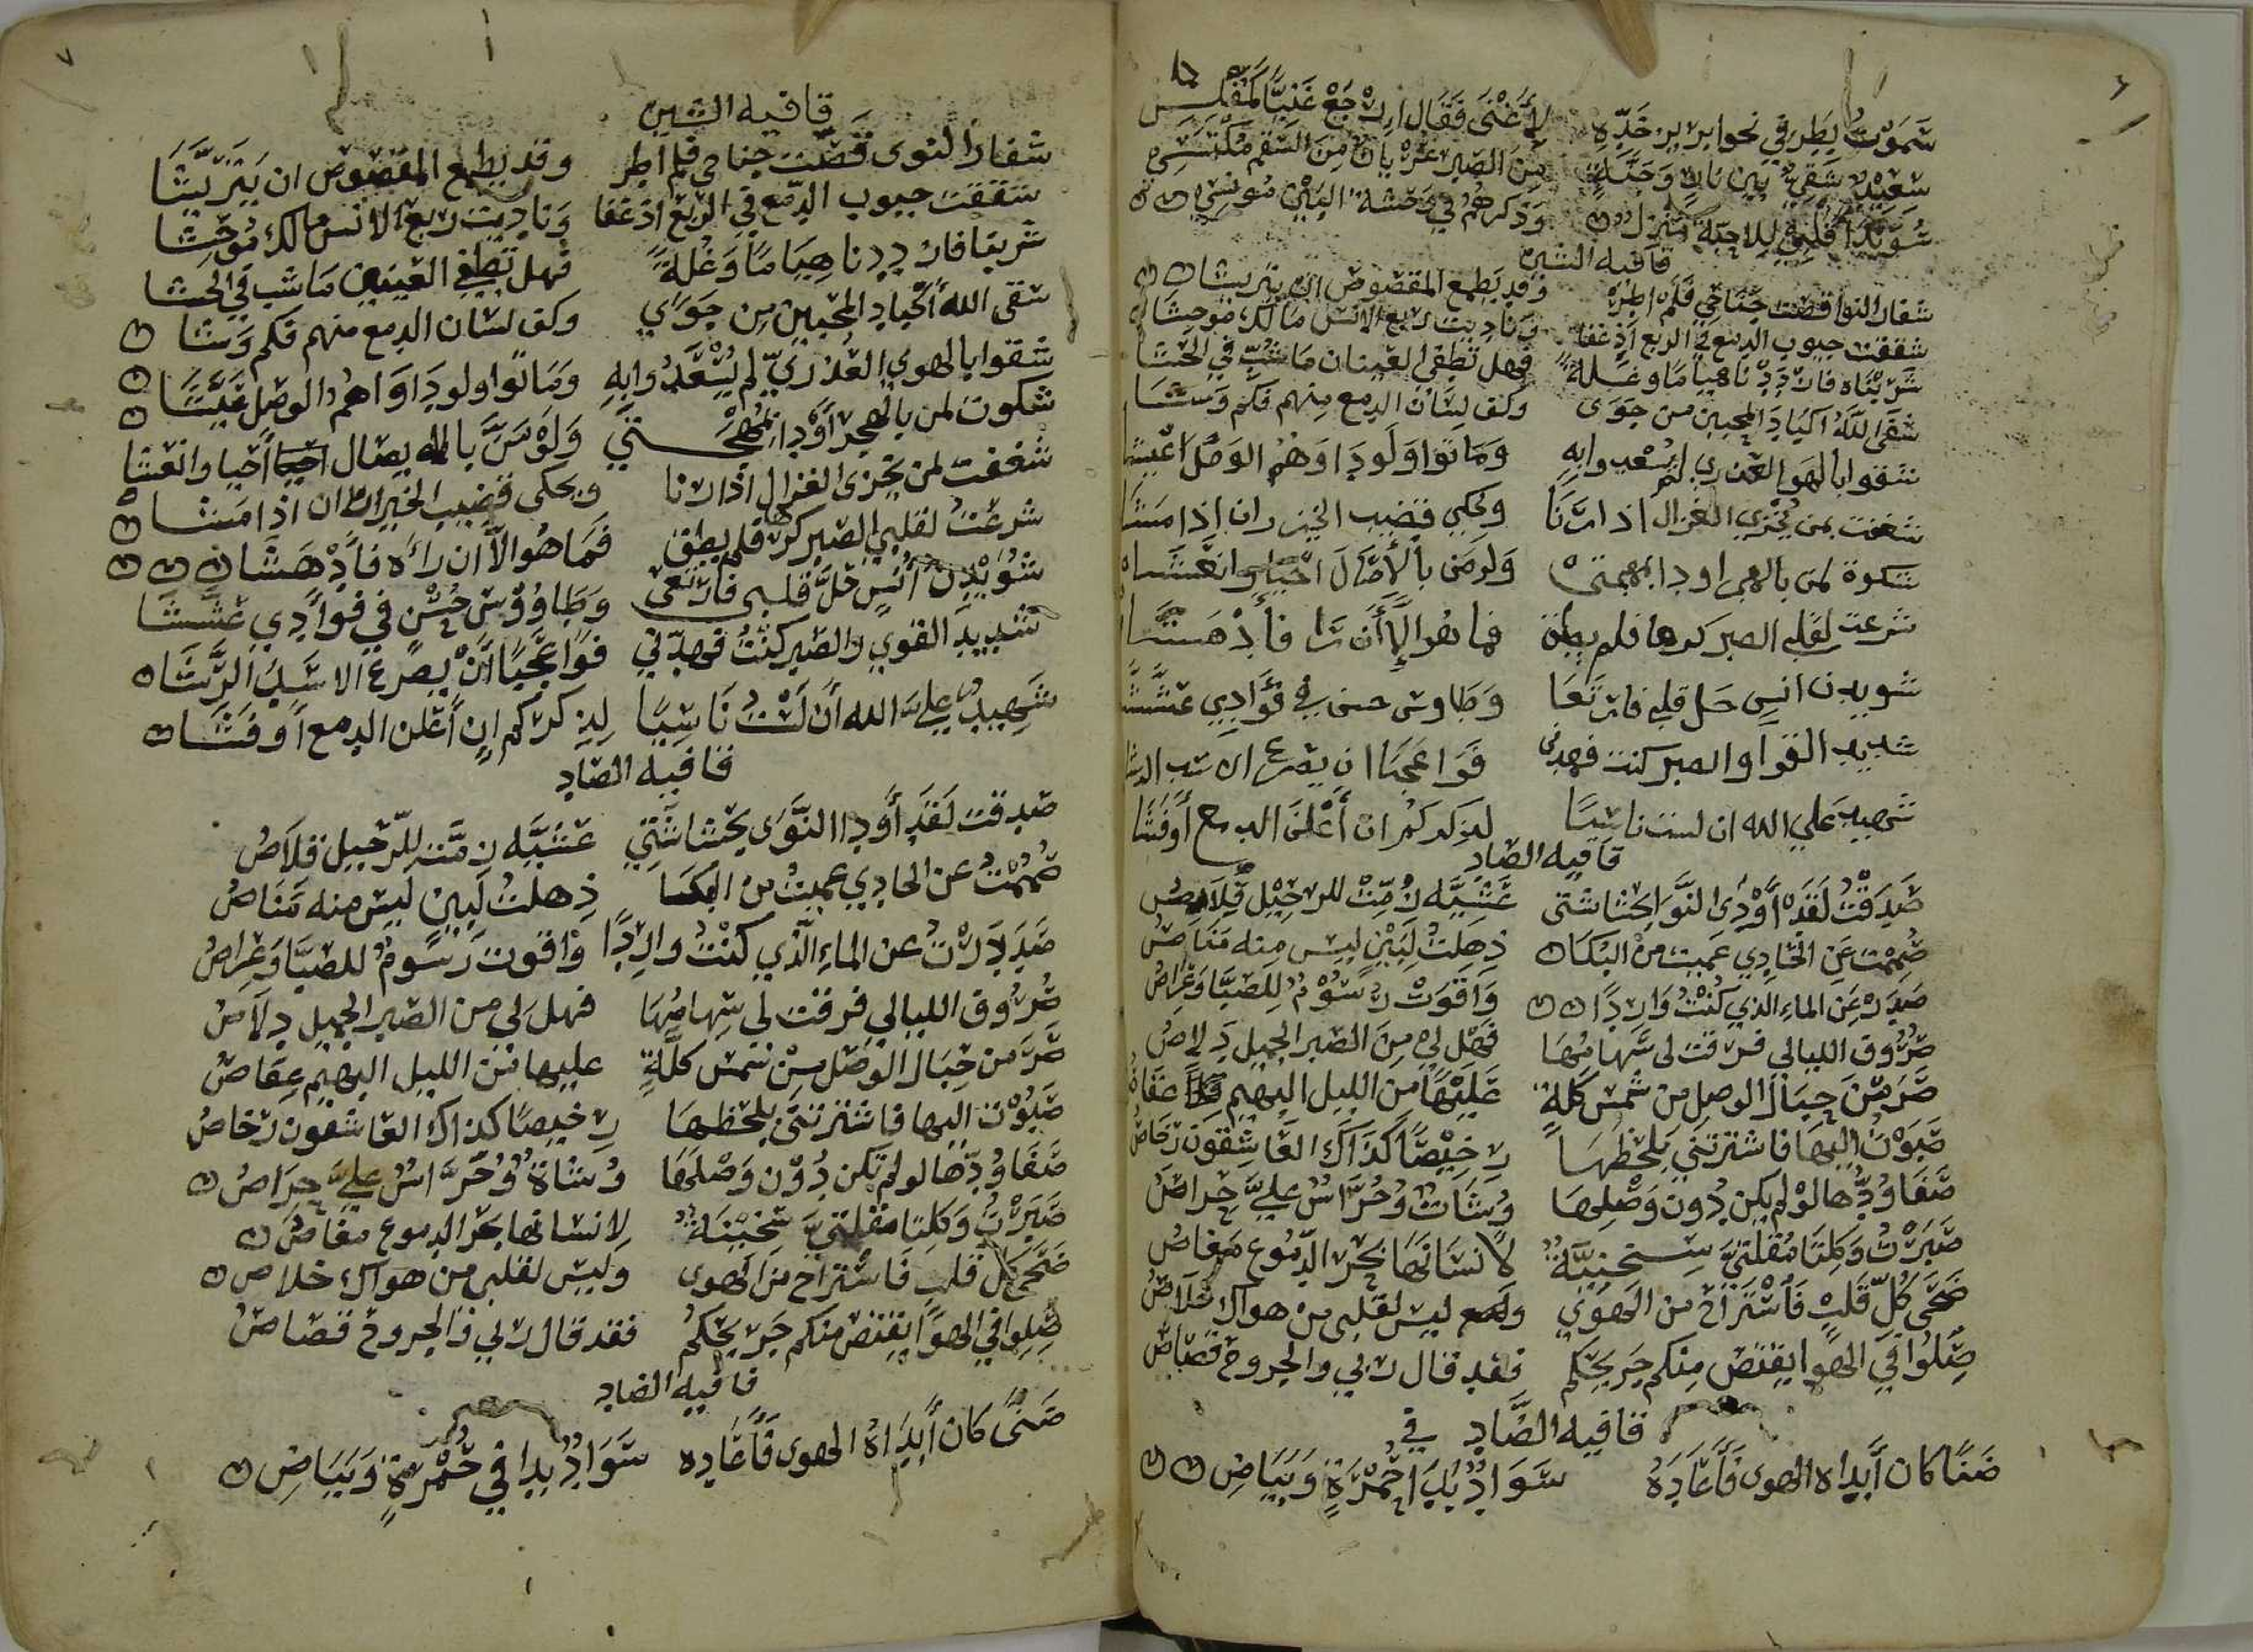 سموت بطرفي نحو ابريز خده لأغنى فقال ارجع غنيا كمفلس
سعيد شقي بين نار وجنة من الصبر عريان من السقم مكتسي
سويدا قلبي للاحبة منزل وذكرهم في وحشة البين مونسي
قافيه الشين
شفار النوا قصت جناحي فلم اطر وقد يطمع المقصوص ان يتريشا
شققت جيوب الدمع في الربع اذ عفا وناديت ربع الانس مالك موحشا
شربناه فازددنا هياما وغلة فهل تطفي العينان ما شب في الحشا
شقى الله اكباد المحبين من جوى وكف لسان الدمع منهم فكم وشا
شقوا بالهوا العذري لم يسعدوا به وماتوا ولو داواهم الوصل اعيشا
شغفت بمن يخزي الغزال اذا رنا ويحكي قضيب الخيزران اذا مشا
شكوة لمن بالهجر اودا بمهجتي ولو من بالإصال احيا وانعشا
شرعت لقلبي الصبر كرها فلم يطق فما هو إلا أن را فأدهشا
شويدن انس حل قلبي فارتعا وطاوس حسن في فؤادي عششا
شديد القوا والصبر كنت فهدني فوا عجبا ان يصرع الاسد الرشا
شهيد علي الله ان لست ناسيا لذكركم ان أعلن الدمع أو فشا
قافيه الصاد
صدقت لقد أودى النوا بحشاشتي عشيه زمت للرحيل قلاص
صممت عن الحادي عميت من البكا ذهلت لبين ليس منه مناص
صدرت عن الماء الذي كنت واردا واقوت رسوم للصبا وعراص
صروف الليالي فرقت لي سهامها فهل لي من الصبر الجميل دلاص
صرمن حبال الوصل من شمس كلة عليها من الليل البهيم عقاص
صبوت اليها فاشترتني بلحظها رخيصا كذاك العاشقون رخاص
صفا ودها لو لم يكن دون وصلها وشات وحراس علي حراص
صبرت وكلتا مقلتي سخينة لانسانها بحر الدموع مغاص
صحى كل قلب فاستراح من الهوى وليس لقلبي من هواك خلاص
صلوا في الهوا يقتص منكم جريحكم فقد قال ربي والجروح قصاص
قافيه الضاد
ضنا كان أبداه الهوى فأعاده سواد بدا في حمرة وبياض
٧
قافيه الشين
شفار النوى قصت جناحي فلم اطر وقد يطمع المقصوص ان يتريشا
شققت جيوب الدمع في الربع اذ عفا وناديت ربع الانس مالك موحشا
شربنا فازددنا هياما وغلة فهل تطفي العينين ما شب في الحشا
سقى الله أكباد المحبين من جواي وكف لسان الدمع منهم فكم وشا
شقوا بالهوي العذري لم يسعدوا به وماتوا ولو داواهم الوصل عيشا
شكوت لمن بالهجر أودا بمهجتي ولو من بالايصال أحيا وانعشا
شغفت لمن يخزى الغزال اذا رنا ويحكى قضيب الخيزران اذا مشا
شرعت لقلبي الصبر كرها فلم يطق فما هو الا ان رأه فأدهشا
شويدن أنس حل قلبي فارتعى وطاووس حسن في فوادي عششا
شديد القوي والصبر كنت فهدني فوا عجبا أن يصرع الاسد الرشا
شهيد علي الله أن لست ناسيا لذكركم ان أعلن الدمع أو فشا
قافيه الصاد
صدقت لقد أودا النوى بحشاشتي عشيه زمت للرحيل قلاص
صممت عن الحادي عميت من البكا ذهلت لبين ليس منه مناص
صددت عن الماء الذي كنت واردا واقوت رسوم للصبا وعراص
صروف الليالي فرقت لي سهامها فهل لي من الصبر الجميل دلاص
صرمن حبال الوصل من شمس كلة عليها من الليل البهيم عقاص
صبوت اليها فاشترتني بلحظها رخيصا كذاك العاشقون رخاص
صفا ودها لو لم تكن دون وصلها وشاة وحراس علي حراص
صبرت وكلتا مقلتي سخينة لانسانها بحر الدموع مغاص
صحى كل قلب فاستراح من الهوى وليس لقلبي من هواك خلاص
صلوا في الهوا يقتص منكم جريحكم فقد قال ربي والجروح قصاص
قافيه الضاد
ضنى كان أبداه الهوى فأعاده سواد بدا في حمرة وبياض